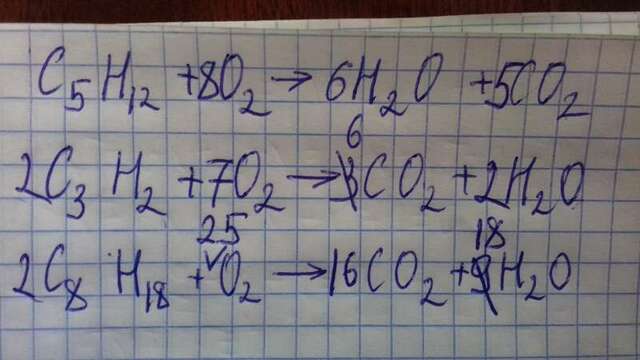 C₅H₁₂ +8O₂ → 6H₂O +5CO₂
2C₃H₂ +7O₂ → 6CO₂ +2H₂O
2C₈H₁₈ +25O₂ → 16CO₂ +18H₂O